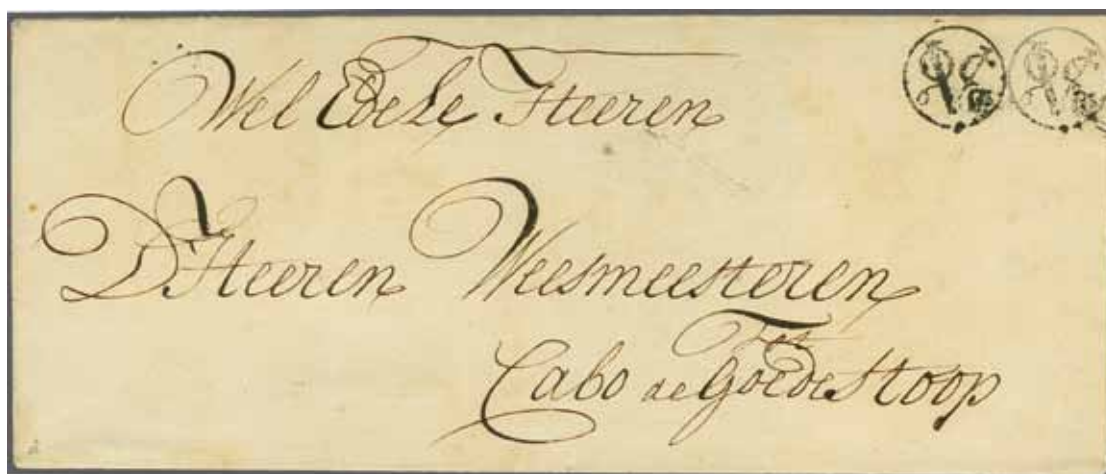 Wel Edele Heeren
D'Heeren Weesmeesteren
Tot
Cabo de Goede Hoop